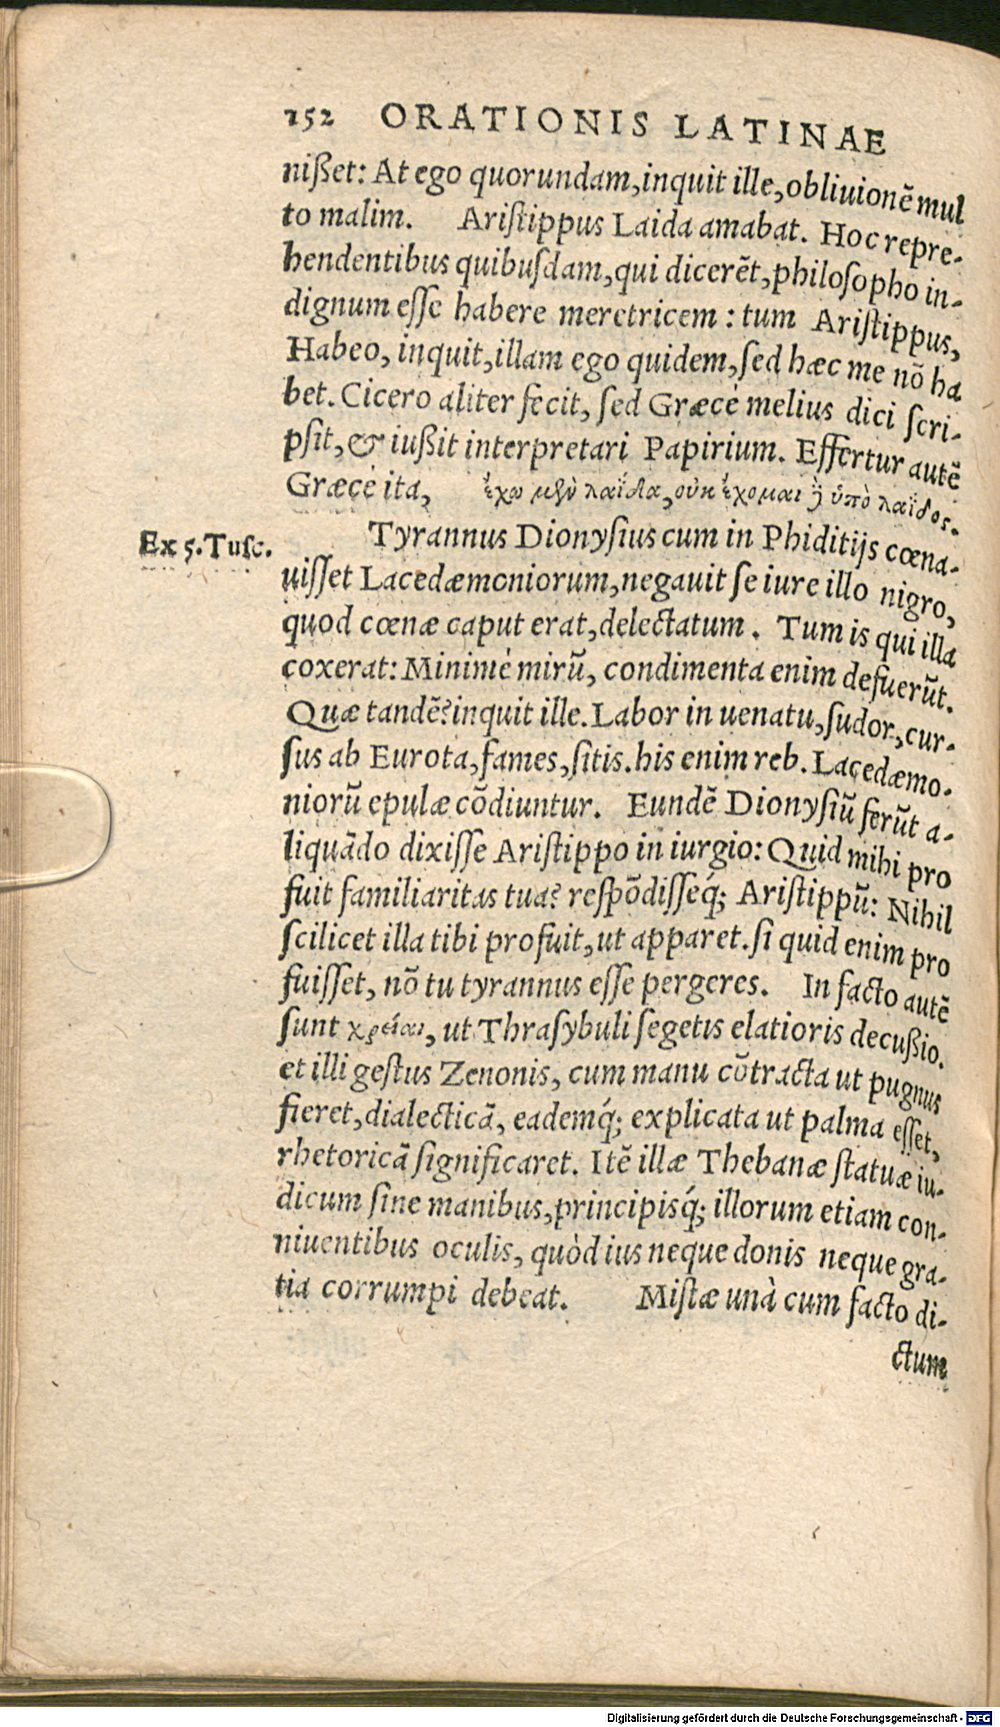 152 ORATIONIS LATINAE
nißet: At ego quorundam, inquit ille, obliuionē mul
to malim. Ariſtippus Laida amabat. Hoc repre-
hendentibus quibuſdam, qui dicerēt, philoſopho in-
dignum eſſe habere meretricem: tum Ariſtippus,
Habeo, inquit, illam ego quidem, ſed hæc me nō ha
bet. Cicero aliter fecit, ſed Græcè melius dici ſcri-
pſit, & iußit interpretari Papirium. Effertur autē
Græcè ita, ἔχω μὲν λαΐδα, οὐκ ἔχομαι ὑπὸ λαΐδος.
Ex 5. Tusc.
Tyrannus Dionyſius cum in Phiditijs cœna-
uiſſet Lacedæmoniorum, negauit ſe iure illo nigro,
quod cœnæ caput erat, delectatum. Tum is qui illa
coxerat: Minimè mirū, condimenta enim defuerūt.
Quæ tandē? inquit ille. Labor in uenatu, ſudor, cur-
ſus ab Eurota, fames, ſitis. his enim reb. Lacedæmo-
niorū epulæ cōdiuntur. Eundē Dionyſiū ferūt a-
liquādo dixiſſe Ariſtippo in iurgio: Quid mihi pro
fuit familiaritas tua? reſpōdiſſeq́; Ariſtippū: Nihil
ſcilicet illa tibi profuit, ut apparet. ſi quid enim pro
fuiſſet, nō tu tyrannus eſſe pergeres. In facto autē
ſunt χρεῖαι, ut Thraſybuli ſegetis elatioris decußio.
et illi geſtus Zenonis, cum manu cōtracta ut pugnus
fieret, dialecticā, eademq́; explicata ut palma eſſet,
rhetoricā ſignificaret. Itē illæ Thebanæ ſtatuæ iu-
dicum ſine manibus, principisq́; illorum etiam con-
niuentibus oculis, quòd ius neque donis neque gra-
tia corrumpi debeat. Miſtæ unà cum facto di-
ctum
Digitalisierung gefördert durch die Deutsche Forschungsgemeinschaft - DFG